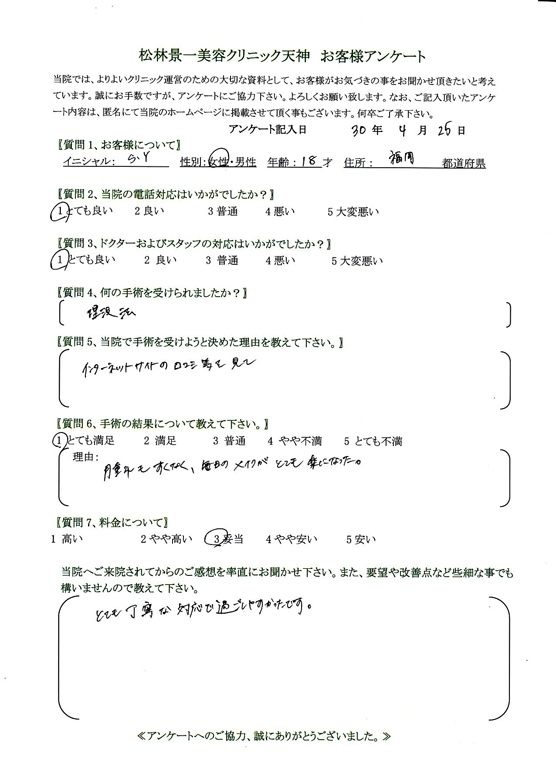 松林景一美容クリニック天神　お客様アンケート
当院では、よりよいクリニック運営のための大切な資料として、お客様がお気づきの事をお聞かせ頂きたいと考え
ています。誠にお手数ですが、アンケートにご協力下さい。よろしくお願い致します。なお、ご記入頂いたアンケ
ート内容は、匿名にて当院のホームページに掲載させて頂く事もございます。何卒ご了承下さい。
アンケート記入日　30 年 4 月 25 日
〖質問1、お客様について〗
イニシャル： S.Y　性別：女性・男性　年齢：18才　住所：福岡　都道府県
〖質問2、当院の電話対応はいかがでしたか？〗
1とても良い　2良い　3普通　4悪い　5大変悪い
〖質問3、ドクターおよびスタッフの対応はいかがでしたか？〗
1とても良い　2 良い　3 普通　4悪い　5大変悪い
〖質問4、何の手術を受けられましたか？〗
埋没法
〖質問5、当院で手術を受けようと決めた理由を教えて下さい。〗
インターネットサイトの口コミ等を見て
〖質問6、手術の結果について教えて下さい。〗
1とても満足　2 満足　3 普通　4 やや不満　5 とても不満
理由：
腫れもすくなく、毎日のメイクがとても楽になった。
〖質問7、料金について〗
1 高い　2やや高い　3妥当　4やや安い　5安い
当院へご来院されてからのご感想を率直にお聞かせ下さい。また、要望や改善点など些細な事でも
構いませんので教えて下さい。
とても丁寧な対応で過ごしやすかたです。
≪アンケートへのご協力、誠にありがとうございました。≫